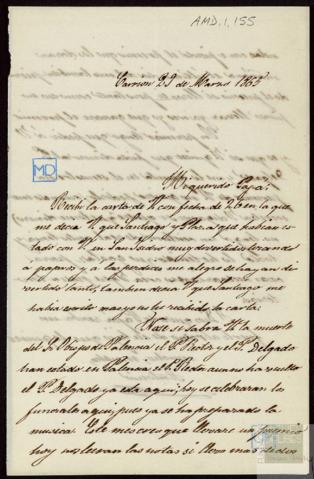 AMD, 1, 155
Carrion 29 de Marzo 1865
MD
Mi querido Papá:
Recibí la carta de V. con fecha de 26 en la que
me decia V. que Santiago y Pilar que habian es-
tado con V. en San Isidro muy divertidos tirando
a pajaros y á las perdices me alegro se hayan di-
vertido tanto, tambien decia V. que Santiago me
habia escrito mas yo no he recibido la carta.
No se si sabra V. la muerte
del Sr. Obispo de Palencia el P. Rector y el P. Delgado
han estado en Palencia el P. Rector aun no ha vuelto
el P. Delgado ya esta aqui; hoy se celebraran los
funerales aqui, pues ya se ha preparado la
musica. Este mes creo que llevare
hoy nos leeran las notas si llevo